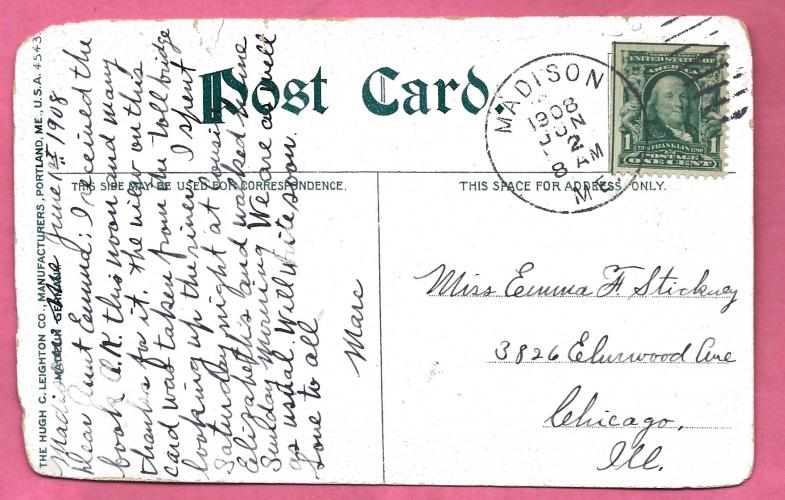 THE HUGH C. LEIGHTON CO., MANUFACTURERS, PORTLAND, ME., U.S.A. 4543
MADE IN GERMANY
Post Card.
THIS SIDE MAY BE USED FOR CORRESPONDENCE.
THIS SPACE FOR ADDRESS ONLY.
MADISON
1908
JUN
2
8 AM
ME.
UNITED STATES OF
AMERICA
1 FRANKLIN 1
POSTAGE
ONE CENT
Madison Me June 1st 1908
Dear Aunt Emma: I received the
book O.K. this noon and many
thanks for it. The view on this
card was taken from the toll bridge
looking up the river. I spent
Saturday night at Cousin
Elizabeth's and walked home
Sunday morning. We are as well
as usual. Will write soon.
Love to all
Marc
Miss Emma F Stickney
3826 Elmwood Ave
Chicago,
Ill.